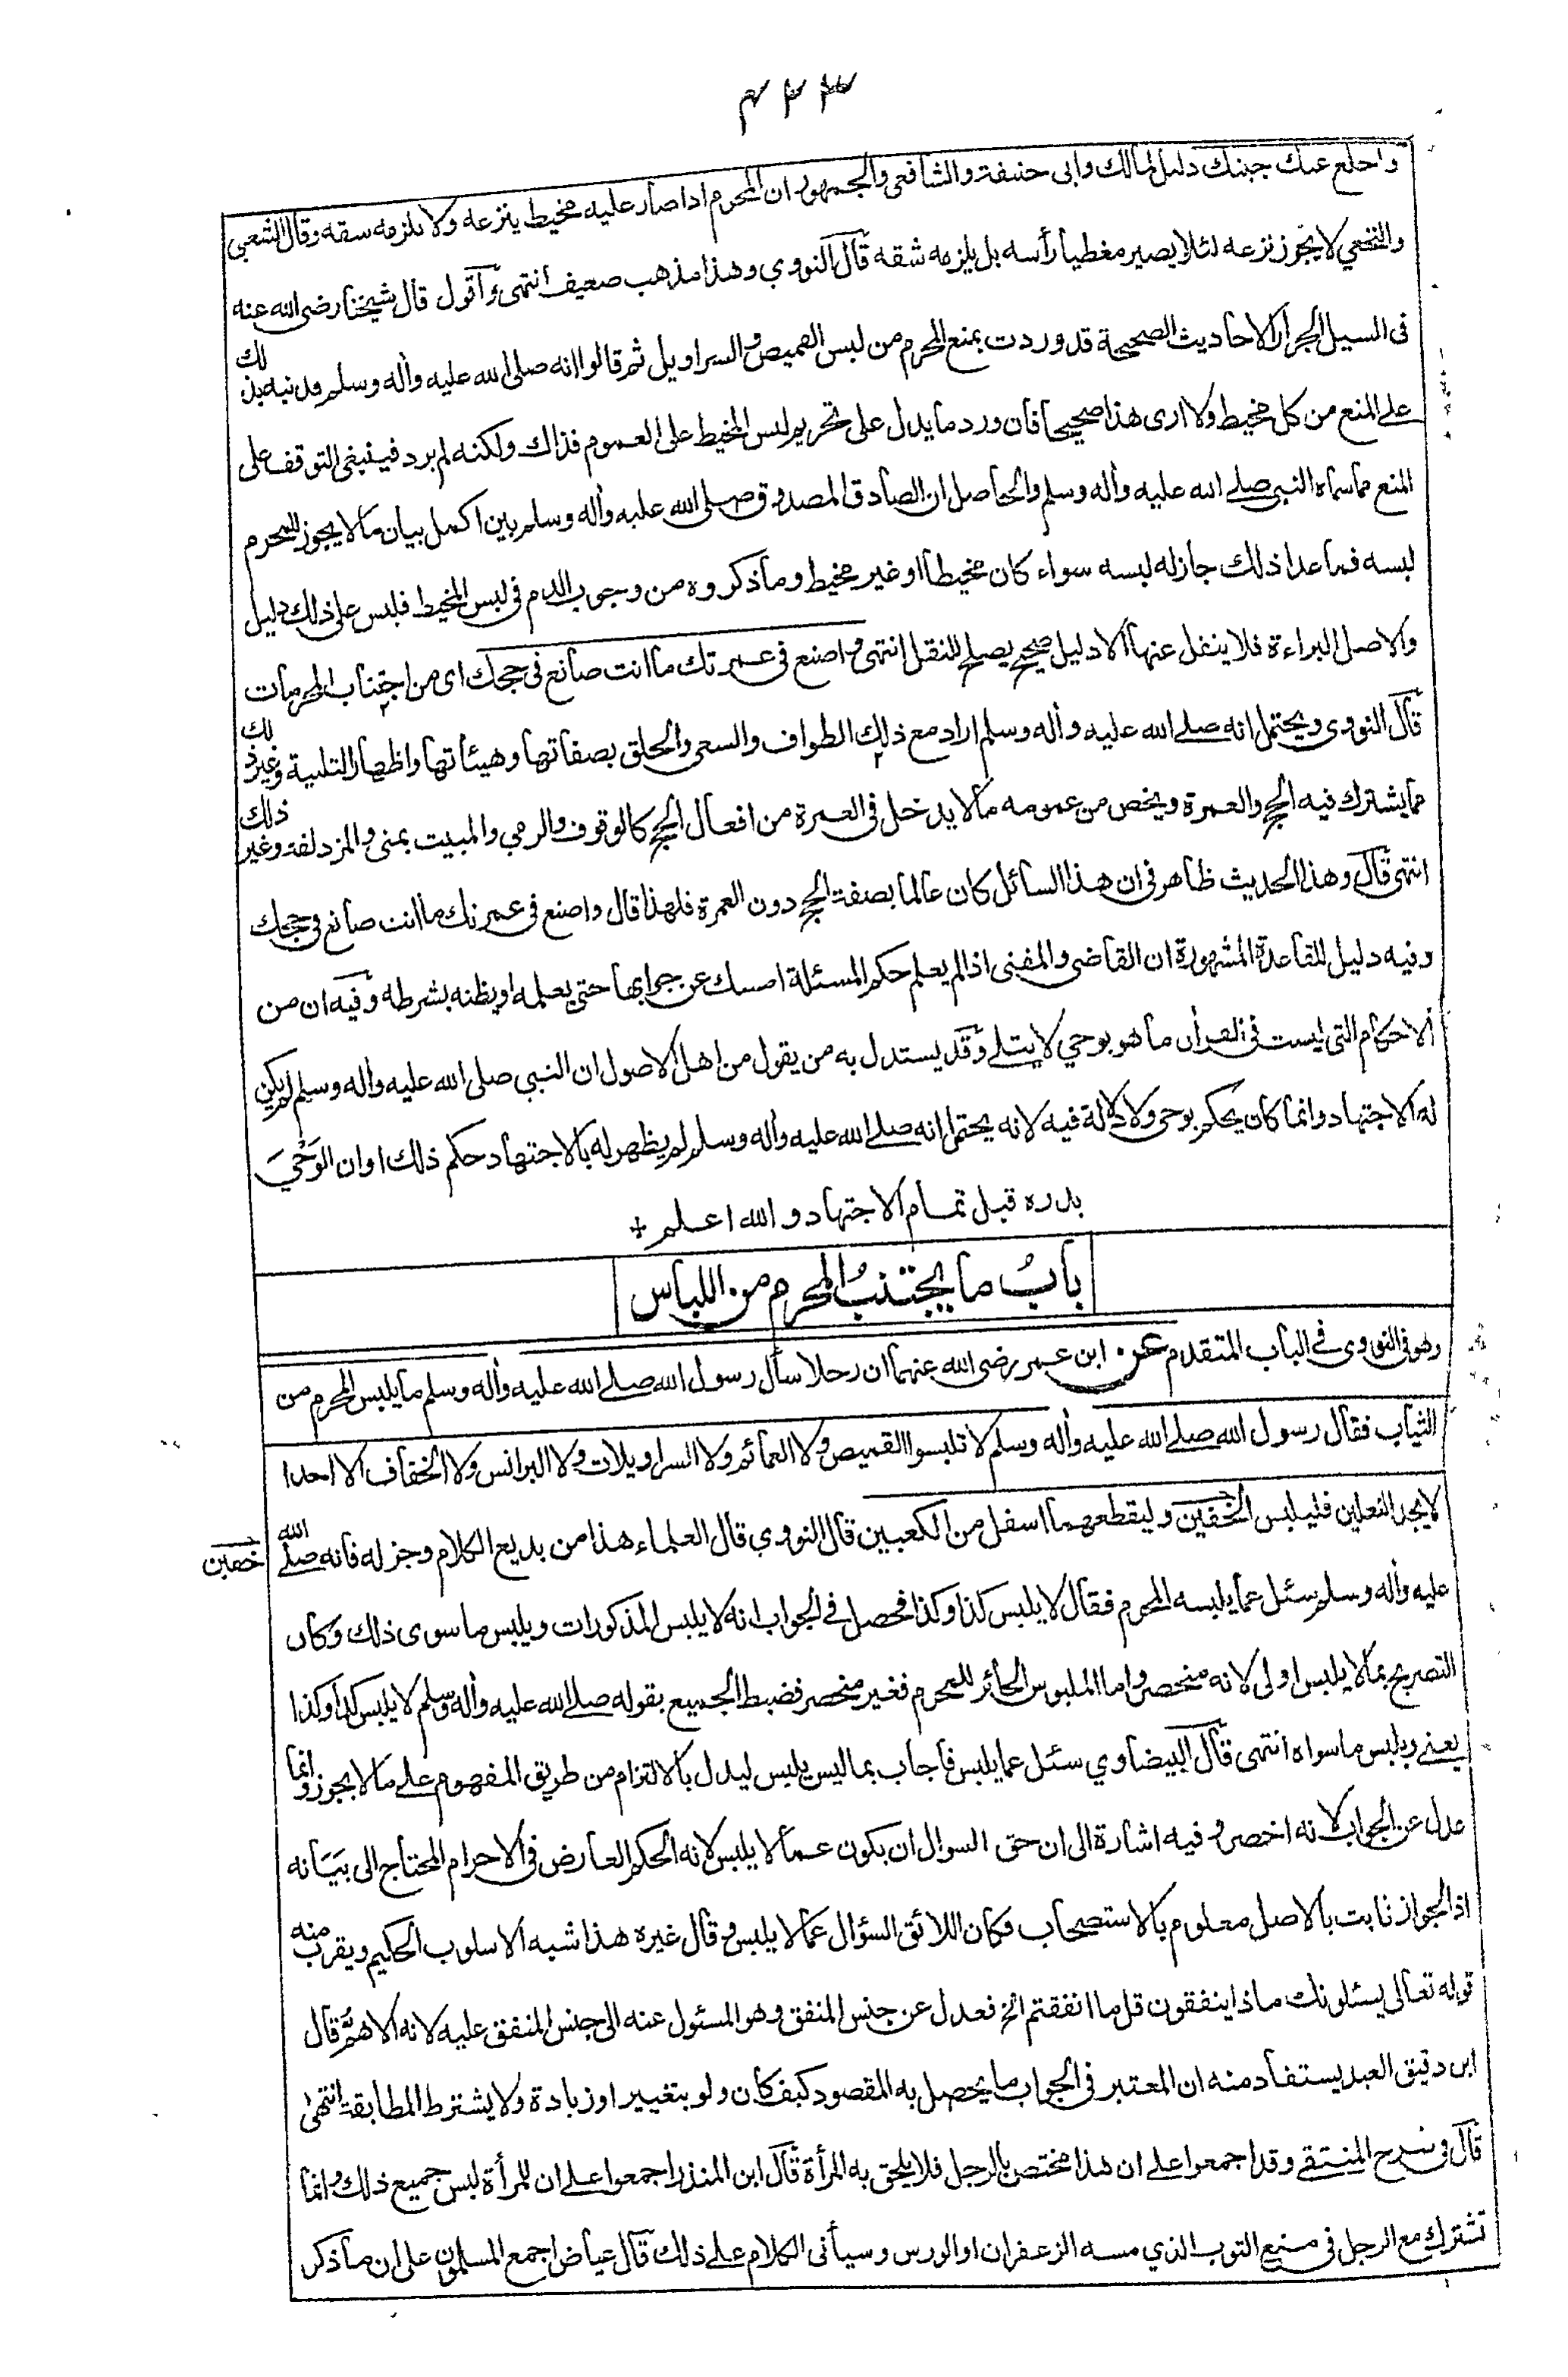 ٤٢٣
واخلع عنك جبتك دليل لمالك وابى حنيفة والشافعى والجمهور ان المحرم اذا صار عليه مخيط ينزعه ولا يلزمه شقه وقال الشعبى
والنخعي لا يجوز نزعه لئلا يصير مغطيا رأسه بل يلزمه شقه قال النووي وهذا مذهب ضعيف انتهى واقول قال شيخنا رضى الله عنه
فى السيل الجرار الاحاديث الصحيحة قد وردت بمنع المحرم من لبس القميص والسراويل ثم قالوا انه صلى الله عليه وأله وسلم قد نبه بذلك
على المنع من كل مخيط ولا ارى هذا صحيحا فان ورد ما يدل على تحريم لبس المخيط على العموم فذاك ولكنه لم يرد فينبغى التوقف على
المنع مما سماه النبى صلے الله عليه وأله وسلم والحاصل ان الصادق المصدوق صلى الله عليه وأله وسلم بين اكمل بيان ما لا يجوز للمحرم
لبسه فما عدا ذلك جاز له لبسه سواء كان مخيطا او غير مخيط وما ذكروه من وجوب الدم فى لبس المخيط فليس على ذلك دليل
والاصل البراءة فلا ينقل عنها الا دليل صحيح يصلح للنقل انتهى واصنع فى عمرتك ما انت صانع فى حجك اى من اجتناب المحرمات
قال النووى ويحتمل انه صلے الله عليه وأله وسلم اراد مع ذلك الطواف والسعى والحلق بصفاتها وهيئاتها واظهار التلبية وغير ذلك
مما يشترك فيه الحج والعمرة ويخص من عمومه ما لا يدخل فى العمرة من افعال الحج كالوقوف والرمي والمبيت بمنى والمزدلفة وغير ذلك
انتهى قال وهذا الحديث ظاهر فى ان هذا السائل كان عالما بصفة الحج دون العمرة فلهذا قال واصنع فى عمرتك ما انت صانع فى حجك
وفيه دليل للقاعدة المشهورة ان القاضى والمفتى اذا لم يعلم حكم المسئلة امسك عن جوابها حتى يعلمه او يظنه بشرطه وفيه ان من
الاحكام التى ليست فى القرأن ما هو بوحي لا يتلے وقد يستدل به من يقول من اهل الاصول ان النبى صلى الله عليه واله وسلم لم يكن
له الاجتهاد وانما كان يحكم بوحى ولا دلالة فيه لانه يحتمل انه صلے الله عليه وأله وسلم لم يظهر له بالاجتهاد حكم ذلك او ان الوَحْيَ
بدره قبل تمام الاجتهاد والله اعلم +
بابُ ما يجتنبُ المحرم من اللباس
وهو فى النووى فى الباب المتقدم عن ابن عمر رضى الله عنهما ان رجلا سأل رسول الله صلے الله عليه وأله وسلم ما يلبس المحرم من
الثياب فقال رسول الله صلے الله عليه وأله وسلم لا تلبسوا القميص ولا العمائم ولا السراويلات ولا البرانس ولا الخفاف الا احدا
لا يجد النعلين فليلبس الخفين وليقطعهما اسفل من الكعبين قال النووي قال العلماء هذا من بديع الكلام وجزله فانه صلے الله
خفين
عليه وأله وسلم سئل عما يلبسه المحرم فقال لا يلبس كذا وكذا فحصل فى الجواب انه لا يلبس المذكورات ويلبس ما سوى ذلك وكان
التصريح بما لا يلبس اولى لانه منحصر واما الملبوس الجائز للمحرم فغير منحصر فضبط الجميع بقوله صلے الله عليه وأله وسلم لا يلبس كذا وكذا
يعنے ويلبس ما سواه انتهى قال البيضاوي سئل عما يلبس فاجاب بما ليس يلبس ليدل بالالتزام من طريق المفهوم على ما لا يجوز وانما
عدل عن الجواب لانه اخصر وفيه اشارة الى ان حق السوال ان يكون عما لا يلبس لانه الحكم العارض فى الاحرام المحتاج الى بيَانه
اذ الجواز ثابت بالاصل معلوم بالاستصحاب وكان اللائق السؤال عما لا يلبس وقال غيره هذا شبه الاسلوب الحكيم ويقرب منه
قوله تعالى يسئلونك ماذا ينفقون قل ما انفقتم الخ فعدل عن جنس المنفق وهو المسئول عنه الى جنس المنفق عليه لانه الاهمُّ قال
ابن دقيق العيد يستفاد منه ان المعتبر فى الجواب ما يحصل به المقصود كيف كان ولو بتغيير او زيادة ولا يشترط المطابقة انتهى
قال فى شرح المنتقے وقد اجمعوا على ان هذا مختص بالرجل فلا يلحق به المرأة قال ابن المنذر اجمعوا على ان للمرأة لبس جميع ذلك وانما
تشترك مع الرجل فى منع الثوب الذي مسه الزعفران او الورس وسيأتى الكلام علے ذلك قال عياض اجمع المسلمون على ان ما ذكر